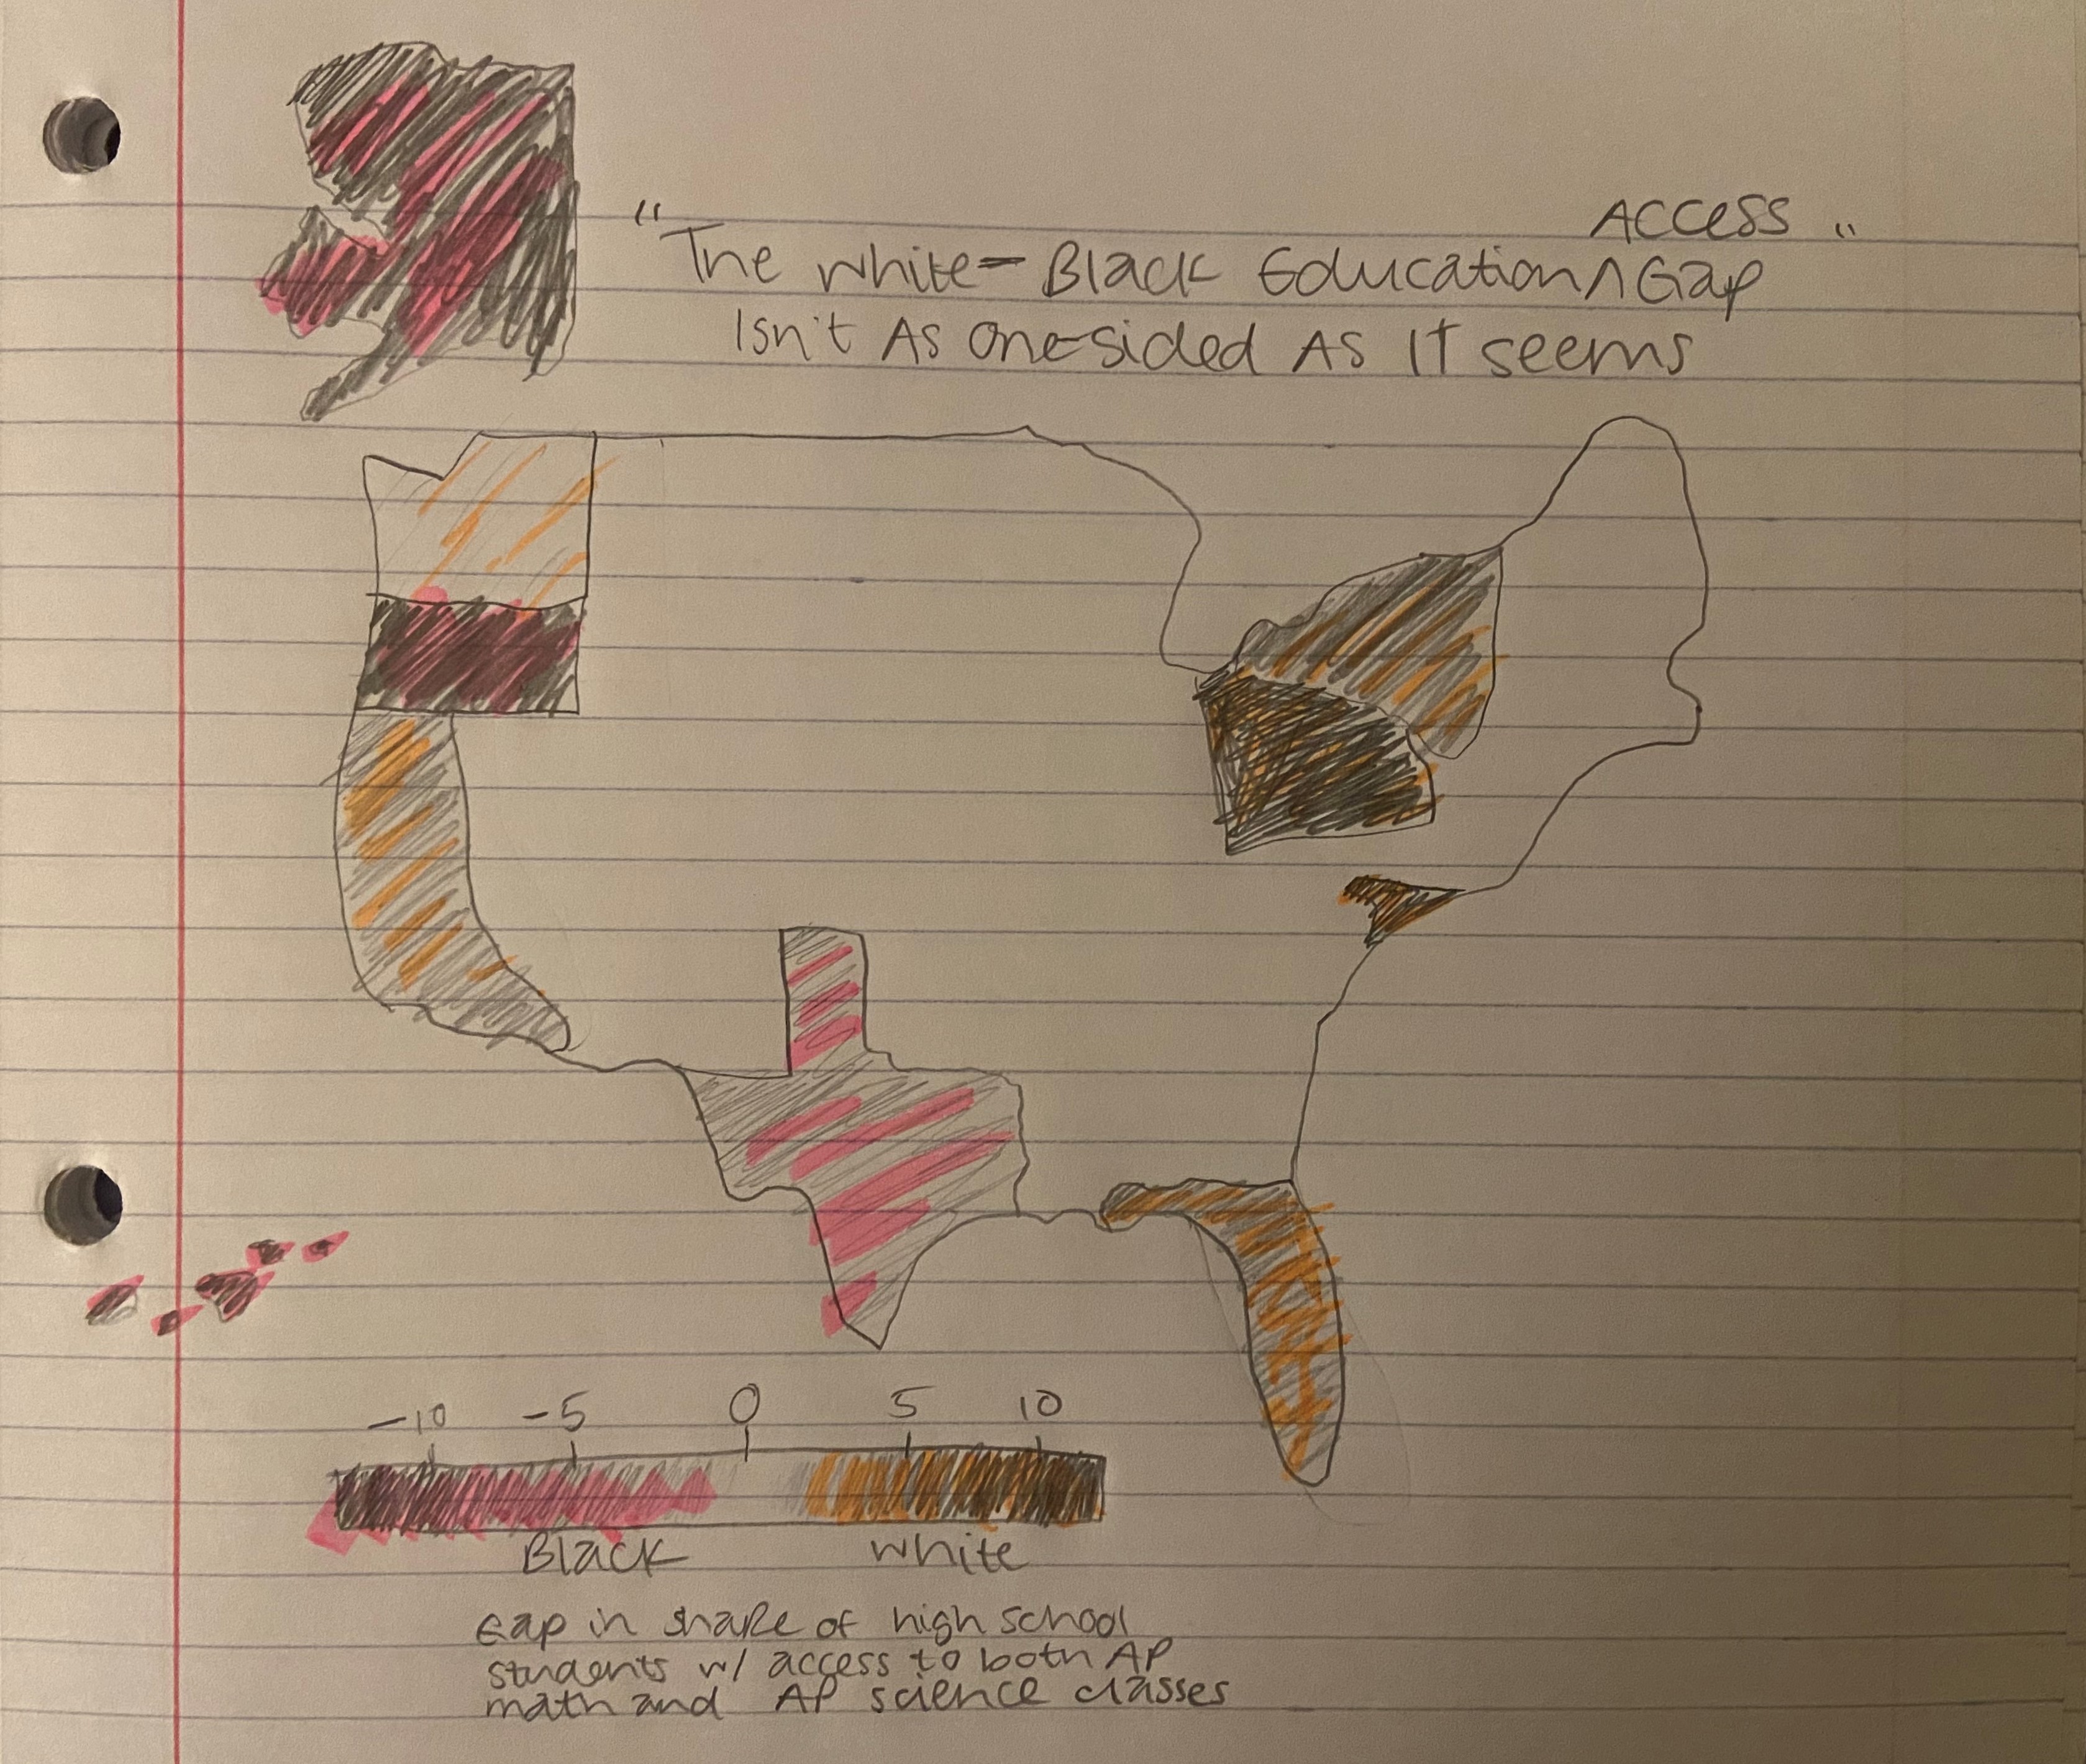 ACCESS
"The white-Black Education ^ Gap"
Isn't As One-sided AS IT seems
-10 -5 0 5 10
Black white
Gap in share of high school
students w/ access to both AP
math and AP science classes